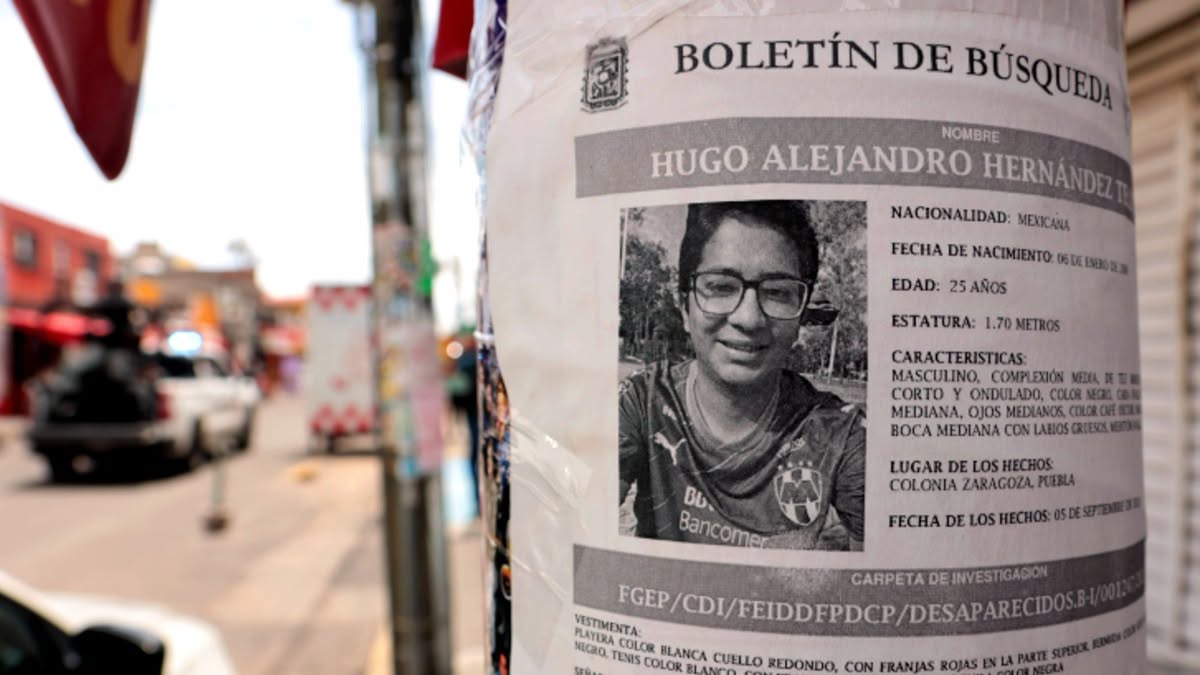 BOLETÍN DE BÚSQUEDA
NOMBRE
HUGO ALEJANDRO HERNÁNDEZ
NACIONALIDAD: MEXICANA
FECHA DE NACIMIENTO: 06 DE ENERO DE
EDAD: 25 AÑOS
ESTATURA: 1.70 METROS
CARACTERISTICAS:
MASCULINO, COMPLEXIÓN MEDIA, DE TEZ
CORTO Y ONDULADO, COLOR NEGRO, CARA
MEDIANA, OJOS MEDIANOS, COLOR CAFÉ
BOCA MEDIANA CON LABIOS GRUESOS,
LUGAR DE LOS HECHOS:
COLONIA ZARAGOZA, PUEBLA
FECHA DE LOS HECHOS: 05 DE SEPTIEMBRE DE
Bancomer
CARPETA DE INVESTIGACIÓN
FGEP/CDI/FEIDDFPDCP/DESAPARECIDOS.B-I/00124
VESTIMENTA:
PLAYERA COLOR BLANCA CUELLO REDONDO, CON FRANJAS ROJAS EN LA PARTE SUPERIOR, BERMUDA COLOR
NEGRO, TENIS COLOR BLANCO, COLOR NEGRA